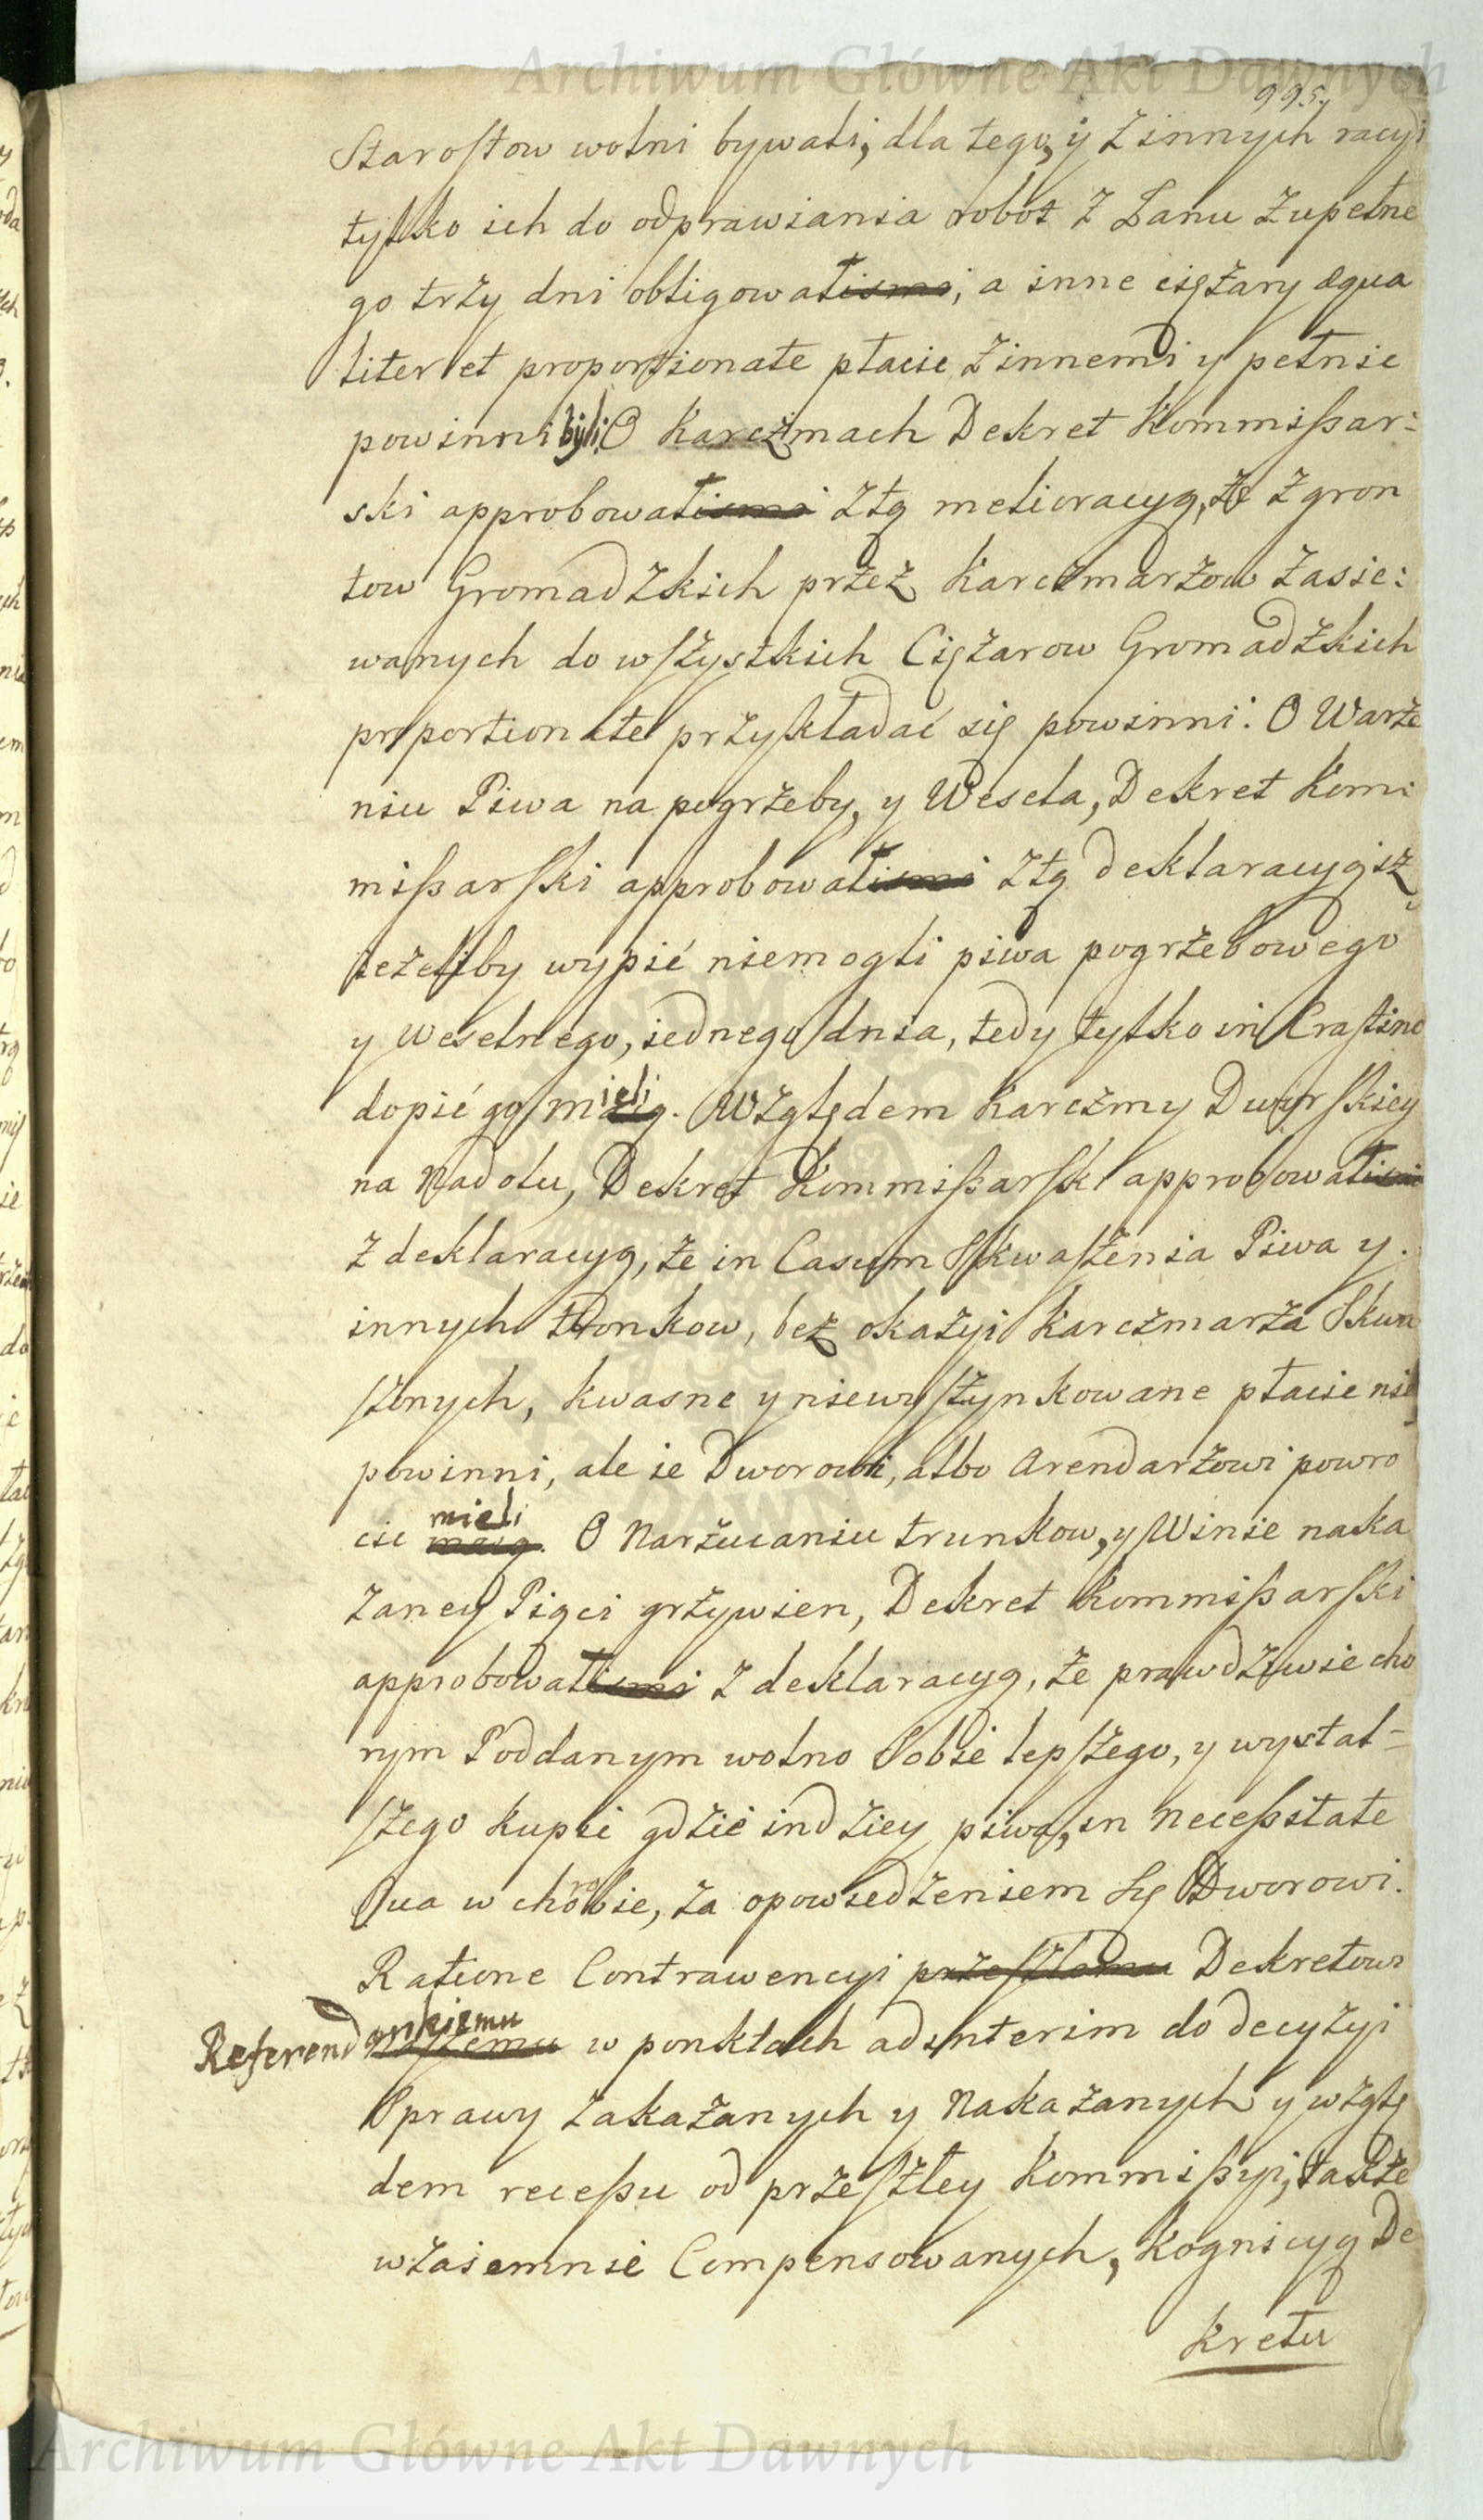 Archiwum Główne Akt Dawnych
995.
Starostow wolni bywali, dla tego, y z innych racyi
tylko ich do odprawiania robot z Łanu zupełne
go trzy dni obligował ismi, a inne ciężary aequa
liter et proportionate płacic z innemi y pełnic
powinni byli. O Karczmach Dekret Kommissar:
ski approbował ismi z tą melioracyą, że z gron
tow Gromadzkich przez Karczmarzow zasie:
wanych do wszystkich Ciężarow Gromadzkich
proportionate przykładać się powinni: O Warze
niu Piwa na pogrzeby, y Wesela, Dekret Kom:
missarski approbował ismi z tą deklaracyą isz
ieżeliby wypić niemogli piwa pogrzebowego
y Weselnego, iednego dnia, tedy tylko in Crastino
dopić go mieli. Względem Karczmy Dworskiey
na Nadolu, Dekret Kommissarski approbował ismi
z deklaracyą, że in Casum Skwaszenia Piwa y
innych tronkow, bez okazyi Karczmarza Skwa
sznych, kwasne y niewyszynkowane płacic nie
powinni, ale ie Dworowi, albo Arendarzowi powro
cic maią mieli. O Narzucaniu trunkow, y Winie naka
zaney Pięci grzywien, Dekret Kommissarski
approbował ismi z deklaracyą, że prawdziwie cho
rym Poddanym wolno Sobie lepszego, y wystal=
szego kupic gdzie indziey piwa, in necessitate
Sua w chorobie, za opowiedzeniem Się Dworowi.
Ratione Contrawencyi przeszłemu Dekretowi
Referendarskiemu naszemu w ponktach ad interim do decyzyi
Sprawy zakazanych y Nakazanych y wzglę
dem recessu od przeszłey Kommissyi, także
wzaiemnie Compensowanych, Kognicyą De
kretu
Archiwum Główne Akt Dawnych